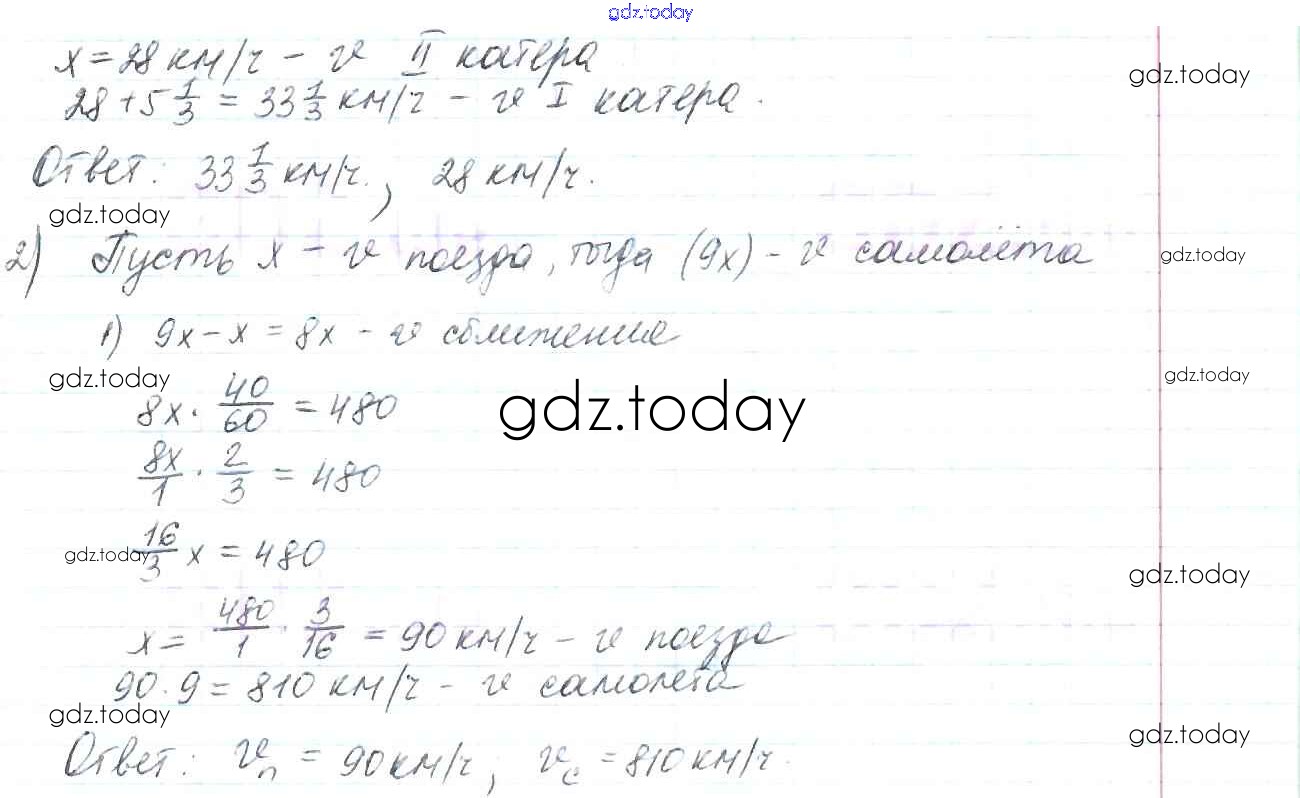 gdz.today
x = 28 км/ч - v II катера
gdz.today
28 + 5 1/3 = 33 1/3 км/ч - v I катера.
Ответ: 33 1/3 км/ч., 28 км/ч.
gdz.today
2) Пусть x - v поезда, тогда (9x) - v самолёта
gdz.today
1) 9x - x = 8x - v сближения
gdz.today
gdz.today
8x · 40/60 = 480
gdz.today
8x/1 · 2/3 = 480
gdz.today
16/3 x = 480
gdz.today
x = 480/1 · 3/16 = 90 км/ч - v поезда
90 · 9 = 810 км/ч - v самолета
gdz.today
gdz.today
Ответ: vп = 90 км/ч, vс = 810 км/ч.